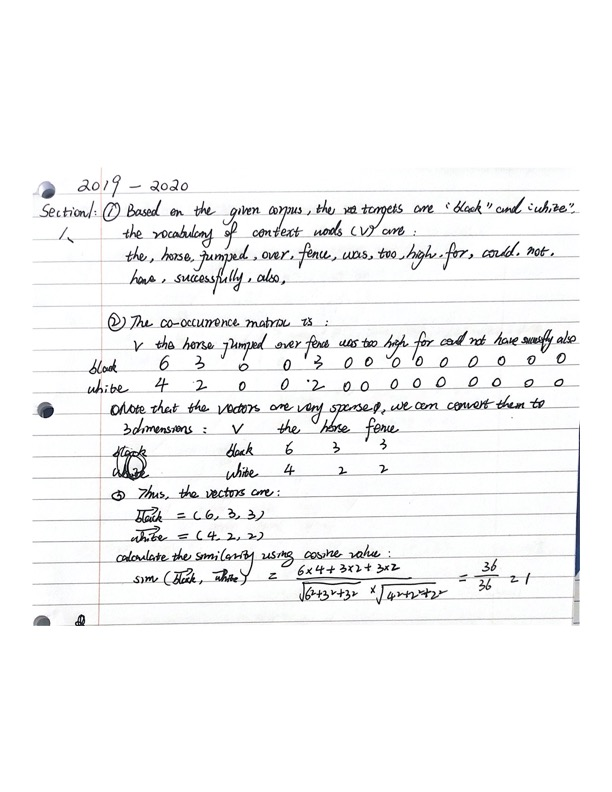 2019 - 2020
Section 1: ① Based on the given corpus, the targets are "black" and "white".
1、 the vocabulary of context words (V) are:
the, horse, jumped, over, fence, was, too, high, for, could, not,
have, successfully, also,
② The co-occurrence matrix is:
V the horse jumped over fence was too high for could not have successfully also
black 6 3 0 0 3 0 0 0 0 0 0 0 0 0
white 4 2 0 0 2 0 0 0 0 0 0 0 0 0
Note that the vectors are very sparse, we can convert them to
3 dimensions: V the horse fence
black black 6 3 3
white white 4 2 2
③ Thus, the vectors are:
black = (6, 3, 3)
white = (4, 2, 2)
calculate the similarity using cosine value:
sim (black, white) = 6×4+3×2+3×2 / √6²+3²+3² × √4²+2²+2² = 36/36 = 1